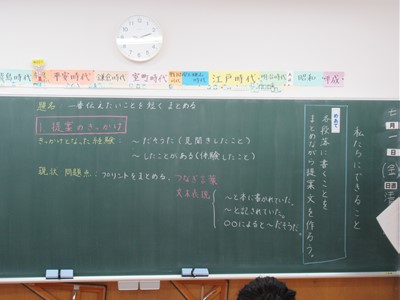 平安時代
鎌倉時代
室町時代
江戸時代
明治時代
昭和
平成
題名：一番伝えたいことを短くまとめる
1. 提案のきっかけ
きっかけとなった経験：～だそうだ（見聞きしたこと）
～したことがある（体験したこと）
現状 問題点：プリントをまとめる。つなぎ言葉
文末表現
～と本に書かれていた。
～と記されていた。
○○によると～だそうだ。
私たちにできること
めあて
各段落に書くことを
まとめながら提案文を作ろう。
月
一
日
(金)
日直